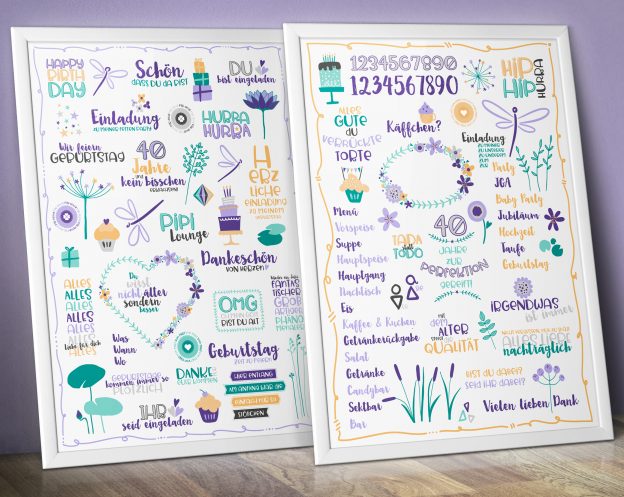 HAPPY
BIRTH
DAY
Schön
DASS DU DA BIST
DU
bist eingeladen
Einladung
HURRA
HURRA
Wir feiern
GEBURTSTAG
40
Jahre
und
kein bisschen
HERZ
LICHE
EINLADUNG
ZU MEINEM
PIPI
Lounge
Dankeschön
VON HERZEN
ALLES
ALLES
ALLES
ALLES
ALLES
Liebe für dich
Du
wirst
nicht älter
sondern
besser
OMG
BIST DU ALT
FANTAS
TISCHER
GROß
ARTIGER
PHÄNO
MENALER
Was
Wann
Wo
Geburtstag
GEBURTSTAGE
kommen immer so
PLÖTZLICH
DANKE
HIER ENTLANG
AM ANFANG WAR DIE
STÖßCHEN
IHR
seid eingeladen
1234567890
1234567890
HIP
HIP
HURRA
ALLES
GUTE
du
VERRÜCKTE
TORTE
Käffchen?
Einladung
Party
JGA
Baby Party
Jubiläum
Hochzeit
Taufe
Geburtstag
Menü
Vorspeise
Suppe
Hauptspeise
Hauptgang
Nachtisch
Eis
Kaffee & Kuchen
Getränkerückgabe
Salat
Getränke
Candybar
Sektbar
Bar
TADA
statt
TODO
40
JAHRE
ZUR
PERFEKTION
GEREIFT!
IRGENDWAS
ist immer
mit dem
ALTER
QUALITÄT
ALLES LIEBE
nachträglich
BIST DU DABEI?
SEID IHR DABEI?
Vielen lieben Dank